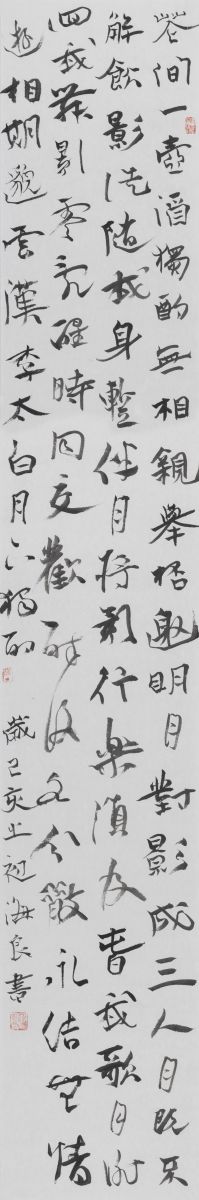 花間一壺酒獨酌無相親舉杯邀明月對影成三人月既不
解飲影徒隨我身暫伴月將影行樂須及春我歌月徘
徊我舞影零亂醒時同交歡醉後各分散永結無情
遊相期邈雲漢李太白月下獨酌 歲己亥之初海良書